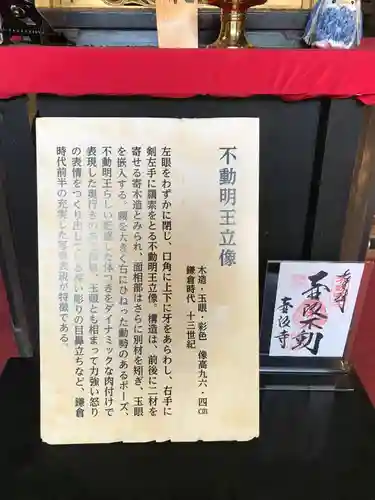 不動明王立像
木造・玉眼・彩色　像高九六・四cm
鎌倉時代　十三世紀
左眼をわずかに閉じ、口角に上下に牙をあらわし、右手に
剣左手に羂索をとる不動明王立像。構造は、前後に二材を
寄せる寄木造とみられ、面相部はさらに別材を矧ぎ、玉眼
を嵌入する。腰を大きく右にひねった動勢のあるポーズ、
不動明王らしい
体つきをダイナミックな肉付けで
表現した奥行きのある
、玉眼とも相まって力強い怒り
の表情をつくり出している
彫りの目鼻立ちなど、鎌倉
時代前半の充実した写実表現が特徴である。
奉拝
不動